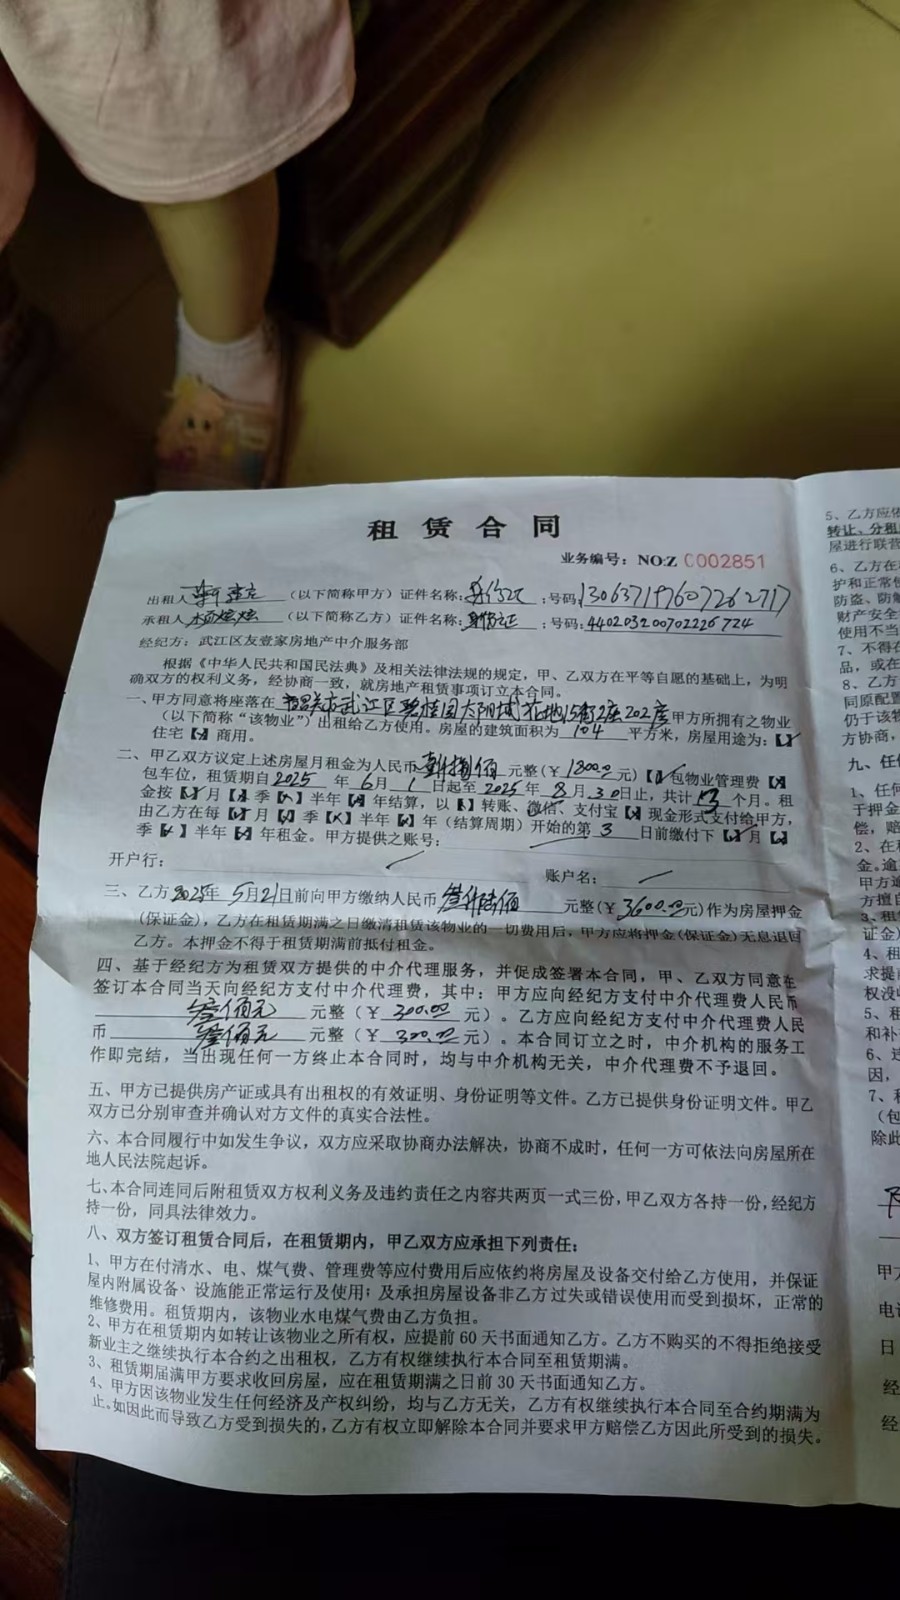 租赁合同
业务编号：NO:Z C002851
出租人 （以下简称甲方）证件名称：身份证 ；号码：130637197607262717
承租人 （以下简称乙方）证件名称：身份证 ；号码：440203200702226724
经纪方：武江区友壹家房地产中介服务部
根据《中华人民共和国民法典》及相关法律法规的规定，甲、乙双方在平等自愿的基础上，为明
确双方的权利义务，经协商一致，就房地产租赁事项订立本合同。
一、甲方同意将座落在 韶关市武江区碧桂园太阳城花地15街2座202房 甲方所拥有之物业
（以下简称“该物业”）出租给乙方使用。房屋的建筑面积为 104 平方米，房屋用途为：【】
住宅【】商用。
二、甲乙双方议定上述房屋月租金为人民币 壹仟捌佰 元整（￥ 1800.00 元）【】包物业管理费【】
包车位，租赁期自 2025 年 6 月 1 日起至 2025 年 8 月 30 日止，共计 3 个月。租
金按【】月【】季【】半年【】年结算，以【】转账、微信、支付宝【】现金形式支付给甲方，
由乙方在每【】月【】季【】半年【】年（结算周期）开始的第 3 日前缴付下【】月【】
季【】半年【】年租金。甲方提供之账号：
开户行： 账户名：
三、乙方 2025年 5月21日前向甲方缴纳人民币 叁仟陆佰 元整（￥ 3600.00 元）作为房屋押金
（保证金），乙方在租赁期满之日缴清租赁该物业的一切费用后，甲方应将押金（保证金）无息退回
乙方。本押金不得于租赁期满前抵付租金。
四、基于经纪方为租赁双方提供的中介代理服务，并促成签署本合同，甲、乙双方同意在
签订本合同当天向经纪方支付中介代理费，其中：甲方应向经纪方支付中介代理费人民币
叁佰元 元整（￥ 300.00 元）。乙方应向经纪方支付中介代理费人民
币 叁佰元 元整（￥ 300.00 元）。本合同订立之时，中介机构的服务工
作即完结，当出现任何一方终止本合同时，均与中介机构无关，中介代理费不予退回。
五、甲方已提供房产证或具有出租权的有效证明、身份证明等文件。乙方已提供身份证明文件。甲乙
双方已分别审查并确认对方文件的真实合法性。
六、本合同履行中如发生争议，双方应采取协商办法解决，协商不成时，任何一方可依法向房屋所在
地人民法院起诉。
七、本合同连同后附租赁双方权利义务及违约责任之内容共两页一式三份，甲乙双方各持一份，经纪方
持一份，同具法律效力。
八、双方签订租赁合同后，在租赁期内，甲乙双方应承担下列责任：
1、甲方在付清水、电、煤气费、管理费等应付费用后应依约将房屋及设备交付给乙方使用，并保证
屋内附属设备、设施能正常运行及使用；及承担房屋设备非乙方过失或错误使用而受到损坏，正常的
维修费用。租赁期内，该物业水电煤气费由乙方负担。
2、甲方在租赁期内如转让该物业之所有权，应提前60天书面通知乙方。乙方不购买的不得拒绝接受
新业主之继续执行本合约之出租权，乙方有权继续执行本合同至租赁期满。
3、租赁期届满甲方要求收回房屋，应在租赁期满之日前30天书面通知乙方。
4、甲方因该物业发生任何经济及产权纠纷，均与乙方无关，乙方有权继续执行本合同至合约期满为
止。如因此而导致乙方受到损失的，乙方有权立即解除本合同并要求甲方赔偿乙方因此所受到的损失。
5、乙方应依
转让、分租
屋进行联营
6、乙方在
护和正常使
防盗、防
财产安全
使用不当
7、不得在
品，或在
8、乙方
同原配置
仍于该物
方协商，
九、任何
1、任何
于押金
偿，赔
2、在
金。逾
甲方
方擅自
3、租
证金）
4、租
求提
权没收
5、租
和补
6、违
因，
7、
（包
除此
甲方
电话
日
经
经